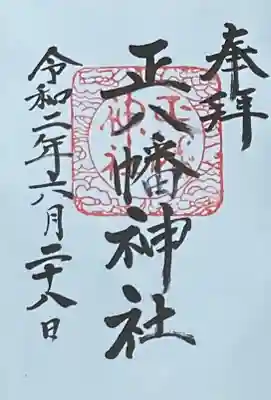 奉拝
正八幡神社
令和二年六月二十八日